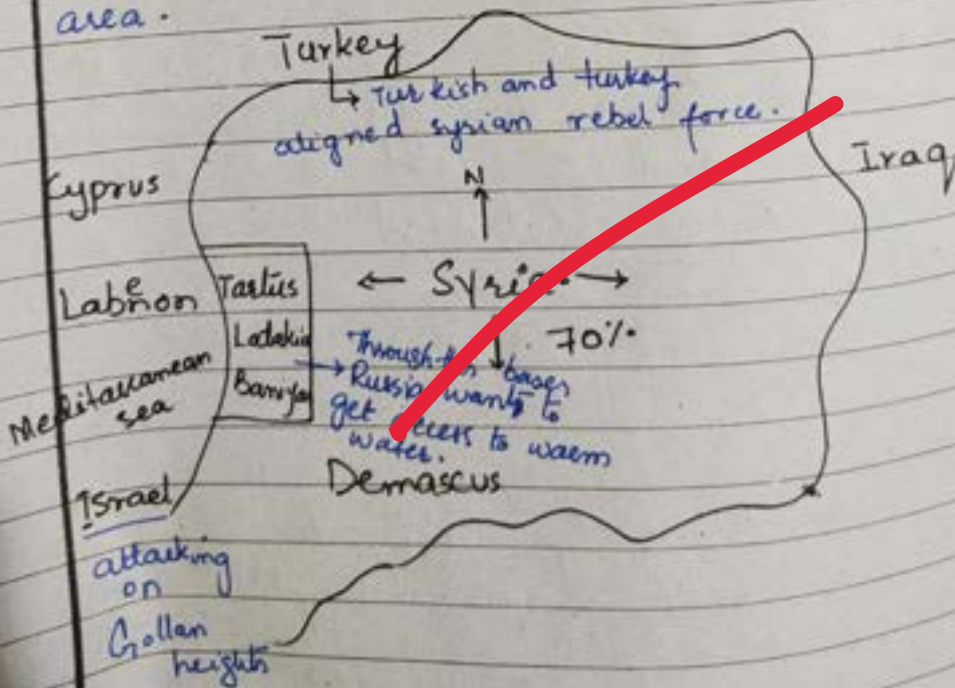 area.
Turkey
↳ Turkish and turkey
aligned syrian rebel force.
Cyprus
Iraq
N
Labenon
Tartus
← Syria →
Ladakia
70%
Meditarranean
sea
Through
bases
Russia wants to
get access to warm
water.
Demascus
Israel
attacking
on
Gollan
heights